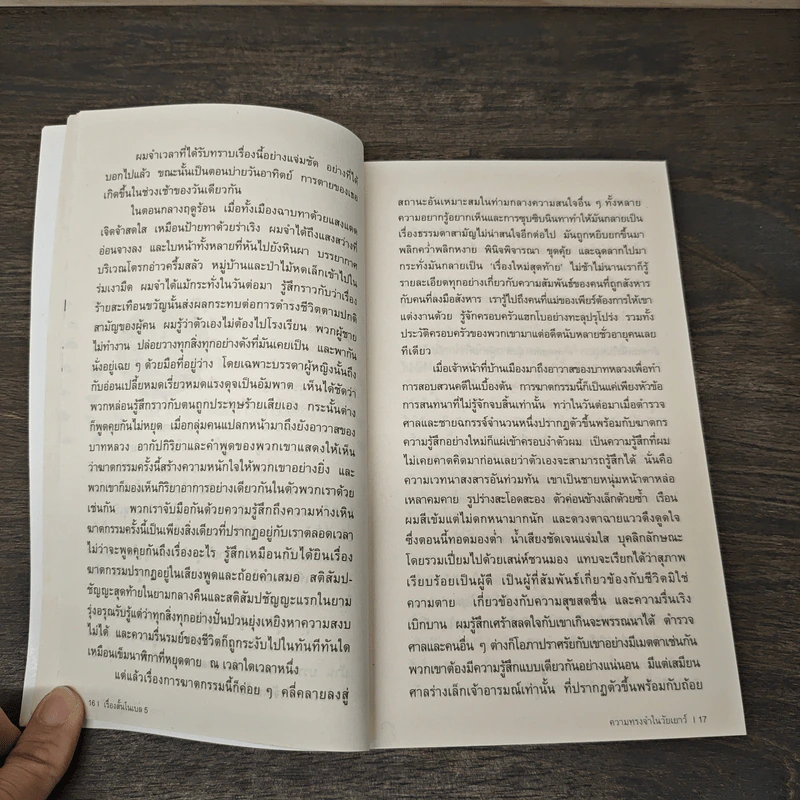 ผมจำเวลาที่ได้รับทราบเรื่องนี้อย่างแจ่มชัด อย่างที่ได้
บอกไปแล้ว ขณะนั้นเป็นตอนบ่ายวันอาทิตย์ การตายของเธอ
เกิดขึ้นในช่วงเช้าของวันเดียวกัน
ในตอนกลางฤดูร้อน เมื่อทั้งเมืองฉาบทาด้วยแสงแดด
เจิดจ้าสดใส เหมือนป้ายทาด้วยร่าเริง ผมจำได้ถึงแสงสว่างที่
อ่อนจางลง และใบหน้าทั้งหลายที่หันไปยังหินผา บรรยากาศ
บริเวณโตรกอ่าวครึ้มสลัว หมู่บ้านและป่าไม้หดเล็กเข้าไปใน
ร่มเงามืด ผมจำได้แม้กระทั่งในวันต่อมา รู้สึกราวกับว่าเรื่อง
ร้ายสะเทือนขวัญนั้นส่งผลกระทบต่อการดำรงชีวิตตามปกติ
สามัญของผู้คน ผมรู้ว่าตัวเองไม่ต้องไปโรงเรียน พวกผู้ชาย
ไม่ทำงาน ปล่อยวางทุกสิ่งทุกอย่างดังที่มันเคยเป็น และพากัน
นั่งอยู่เฉย ๆ ด้วยมือที่อยู่ว่าง โดยเฉพาะบรรดาผู้หญิงนั้นถึง
กับอ่อนเปลี้ยหมดเรี่ยวหมดแรงดุจเป็นอัมพาต เห็นได้ชัดว่า
พวกหล่อนรู้สึกราวกับตนถูกประทุษร้ายเสียเอง กระนั้นต่าง
ก็พูดคุยกันไม่หยุด เมื่อกลุ่มคนแปลกหน้ามาถึงยังอาวาสของ
บาทหลวง อากัปกิริยาและคำพูดของพวกเขาแสดงให้เห็น
ว่าฆาตกรรมครั้งนี้สร้างความหนักใจให้พวกเขาอย่างยิ่ง และ
พวกเขาก็มองเห็นกิริยาอาการอย่างเดียวกันในตัวพวกเราด้วย
เช่นกัน พวกเราจับมือกันด้วยความรู้สึกถึงความห่างเหิน
ฆาตกรรมครั้งนี้เป็นเพียงสิ่งเดียวที่ปรากฏอยู่กับเราตลอดเวลา
ไม่ว่าจะพูดคุยกันถึงเรื่องอะไร รู้สึกเหมือนกับได้ยินเรื่อง
ฆาตกรรมปรากฏอยู่ในเสียงพูดและถ้อยคำเสมอ สติสัมป-
ชัญญะสุดท้ายในยามกลางคืนและสติสัมปชัญญะแรกในยาม
รุ่งอรุณรับรู้แต่ว่าทุกสิ่งทุกอย่างปั่นป่วนยุ่งเหยิงหาความสงบ
ไม่ได้ และความรื่นรมย์ของชีวิตก็ถูกระงับไปในทันทีทันใด
เหมือนเข็มนาฬิกาที่หยุดตาย ณ เวลาใดเวลาหนึ่ง
แต่แล้วเรื่องการฆาตกรรมนี้ก็ค่อย ๆ คลี่คลายลงสู่
16 | เรื่องสั้นโนเบล 5
สถานะอันเหมาะสมในท่ามกลางความสนใจอื่น ๆ ทั้งหลาย
ความอยากรู้อยากเห็นและการซุบซิบนินทาทำให้มันกลายเป็น
เรื่องธรรมดาสามัญไม่น่าสนใจอีกต่อไป มันถูกหยิบยกขึ้นมา
พลิกคว่ำพลิกหงาย พินิจพิจารณา ขุดคุ้ย และฉุดลากไปมา
กระทั่งมันกลายเป็น 'เรื่องใหม่สุดท้าย' ไม่ช้าไม่นานเราก็รู้
รายละเอียดทุกอย่างเกี่ยวกับความสัมพันธ์ของคนที่ถูกสังหาร
กับคนที่ลงมือสังหาร เรารู้ไปถึงคนที่แม่ของเพียร์ต้องการให้เขา
แต่งงานด้วย รู้จักครอบครัวแฮกโบอย่างทะลุปรุโปร่ง รวมทั้ง
ประวัติครอบครัวของพวกเขามาแต่อดีตนับหลายชั่วอายุคนเลย
ทีเดียว
เมื่อเจ้าหน้าที่บ้านเมืองมาถึงอาวาสของบาทหลวงเพื่อทำ
การสอบสวนคดีในเบื้องต้น การฆาตกรรมนี้ก็เป็นแค่เพียงหัวข้อ
การสนทนาที่ไม่รู้จักจบสิ้นเท่านั้น ทว่าในวันต่อมาเมื่อตำรวจ
ศาลและชายฉกรรจ์จำนวนหนึ่งปรากฏตัวขึ้นพร้อมกับฆาตกร
ความรู้สึกอย่างใหม่ก็แผ่เข้าครอบงำตัวผม เป็นความรู้สึกที่ผม
ไม่เคยคาดคิดมาก่อนเลยว่าตัวเองจะสามารถรู้สึกได้ นั่นคือ
ความเวทนาสงสารอันท่วมท้น เขาเป็นชายหนุ่มหน้าตาหล่อ
เหลาคมคาย รูปร่างสะโอดสะอง ตัวค่อนข้างเล็กด้วยซ้ำ เรือน
ผมสีเข้มแต่ไม่ดกหนามากนัก และดวงตาฉายแววดึงดูดใจ
ซึ่งตอนนี้ทอดมองต่ำ น้ำเสียงชัดเจนแจ่มใส บุคลิกลักษณะ
โดยรวมเปี่ยมไปด้วยเสน่ห์ชวนมอง แทบจะเรียกได้ว่าสุภาพ
เรียบร้อยเป็นผู้ดี เป็นผู้ที่สัมพันธ์เกี่ยวข้องกับชีวิตมิใช่
ความตาย เกี่ยวข้องกับความสุขสดชื่น และความรื่นเริง
เบิกบาน ผมรู้สึกเศร้าสลดใจกับเขาเกินจะพรรณนาได้ ตำรวจ
ศาลและคนอื่น ๆ ต่างก็โอภาปราศรัยกับเขาอย่างมีเมตตาเช่นกัน
พวกเขาต้องมีความรู้สึกแบบเดียวกันอย่างแน่นอน มีแต่เสมียน
ศาลร่างเล็กเจ้าอารมณ์เท่านั้น ที่ปรากฏตัวขึ้นพร้อมกับถ้อย
ความทรงจำในวัยเยาว์ | 17